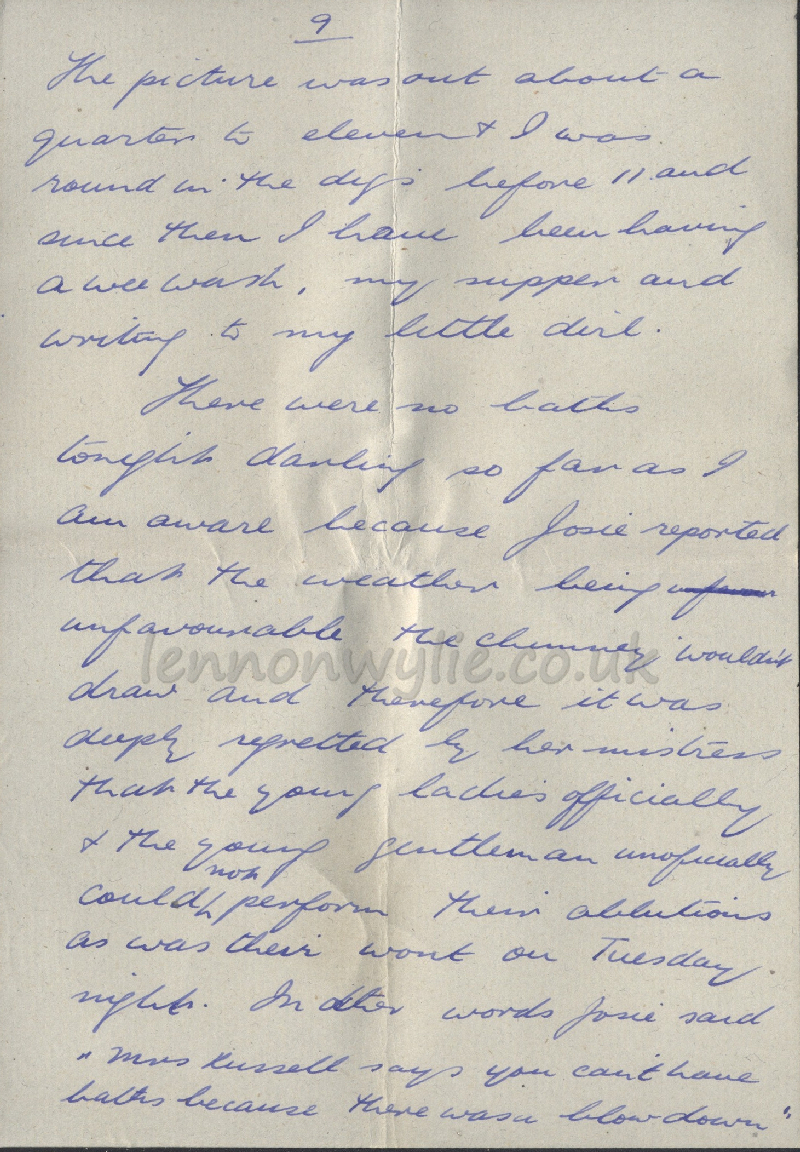 9
The picture was out about a
quarter to eleven & I was
round in the digs before 11 and
since then I have been having
a wee wash, my supper and
writing to my little dirl.
There were no baths
tonight darling so far as I
am aware because Josie reported
that the weather being
unfavourable the chimney wouldn't
draw and therefore it was
deeply regretted by her mistress
that the young ladies officially
& the young gentleman unofficially
could not perform their ablutions
as was their wont on Tuesday
night. In other words Josie said
"Mrs Russell says you can't have
baths because there was a blow down"
lennonwylie.co.uk